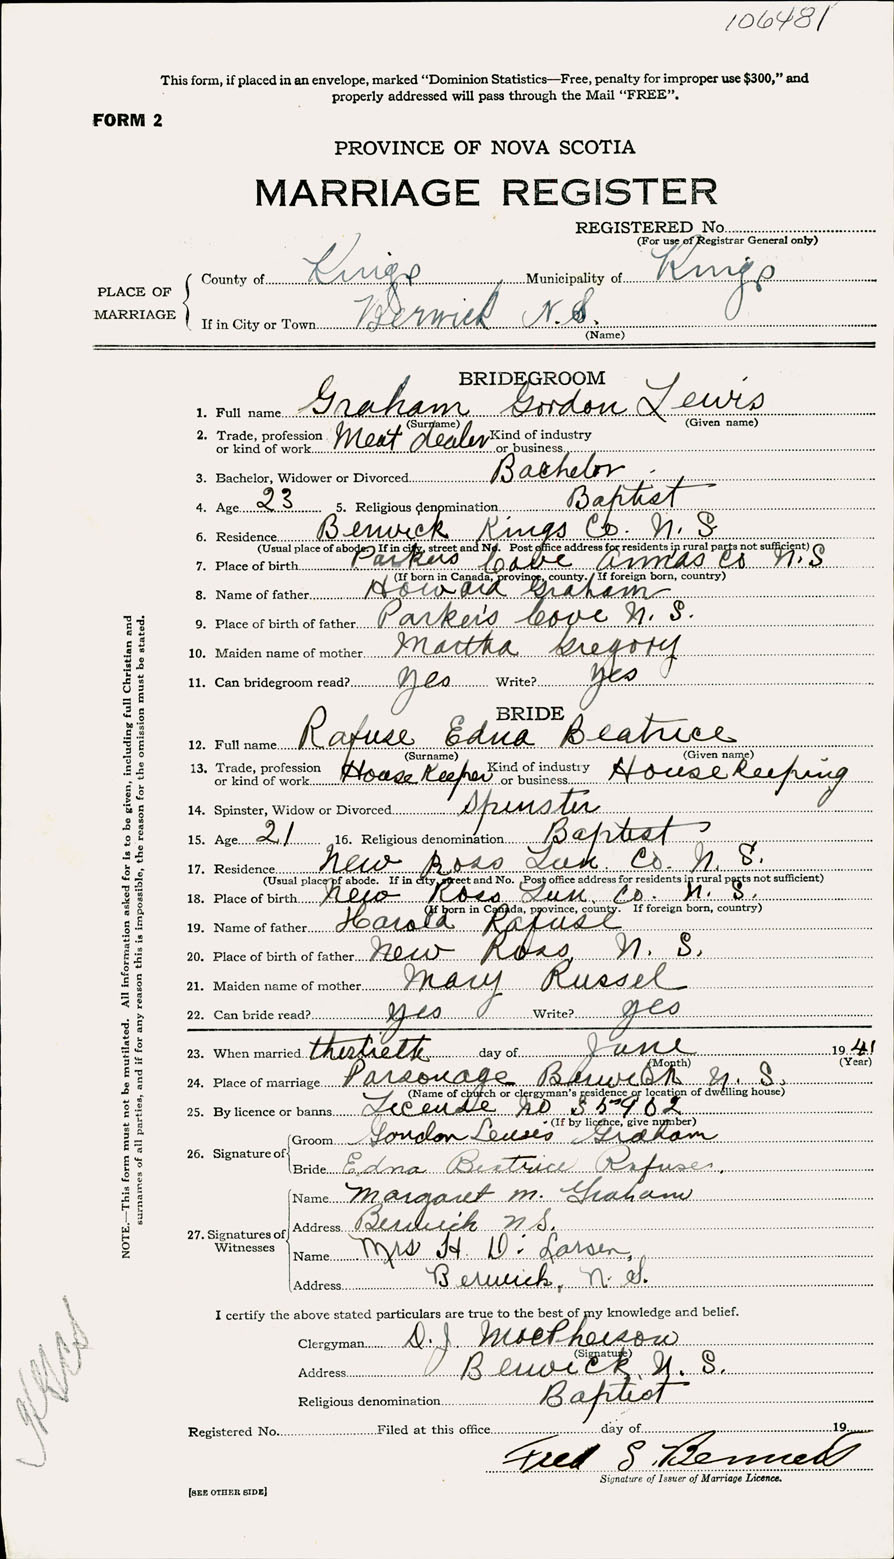 106481
This form, if placed in an envelope, marked “Dominion Statistics—Free, penalty for improper use $300,” and
properly addressed will pass through the Mail “FREE”.
FORM 2
PROVINCE OF NOVA SCOTIA
MARRIAGE REGISTER
REGISTERED No.
(For use of Registrar General only)
PLACE OF MARRIAGE
County of Kings Municipality of Kings
If in City or Town Berwick N.S.
(Name)
BRIDEGROOM
1. Full name Graham Gordon Lewis
(Surname) (Given name)
2. Trade, profession or kind of work Meat dealer Kind of industry or business
3. Bachelor, Widower or Divorced Bachelor
4. Age 23 5. Religious denomination Baptist
6. Residence Berwick Kings Co. N. S
(Usual place of abode. If in city, street and No. Post office address for residents in rural parts not sufficient)
7. Place of birth Parkers Cove Annas Co N.S
(If born in Canada, province, county. If foreign born, country)
8. Name of father Howard Graham
9. Place of birth of father Parker's Cove N. S.
10. Maiden name of mother Martha Gregory
11. Can bridegroom read? yes Write? yes
BRIDE
12. Full name Rafuse Edna Beatrice
(Surname) (Given name)
13. Trade, profession or kind of work House Keeper Kind of industry or business House Keeping
14. Spinster, Widow or Divorced Spinster
15. Age 21 16. Religious denomination Baptist
17. Residence New Ross Lun. Co. N. S.
(Usual place of abode. If in city, street and No. Post office address for residents in rural parts not sufficient)
18. Place of birth New Ross Lun. Co. N. S.
(If born in Canada, province, county. If foreign born, country)
19. Name of father Harold Rafuse
20. Place of birth of father New Ross, N. S.
21. Maiden name of mother Mary Russel
22. Can bride read? yes Write? yes
23. When married thirtieth day of June 1941
(Month) (Year)
24. Place of marriage Parsonage Berwick N. S.
(Name of church or clergyman's residence or location of dwelling house)
25. By licence or banns License No S5902
(If by licence, give number)
26. Signature of
Groom Gordon Lewis Graham
Bride Edna Beatrice Rafuse.
27. Signatures of Witnesses
Name Margaret M. Graham
Address Berwick N.S.
Name Mrs H. D. Larsen,
Address Berwick, N. S.
I certify the above stated particulars are true to the best of my knowledge and belief.
Clergyman D. J. MacPherson
(Signature)
Address Berwick, N. S.
Religious denomination Baptist
Registered No. Filed at this office day of 19
Fred S. Bennett
Signature of Issuer of Marriage Licence.
[SEE OTHER SIDE]
NOTE.—This form must not be mutilated. All information asked for is to be given, including full Christian and
surnames of all parties, and if for any reason this is impossible, the reason for the omission must be stated.